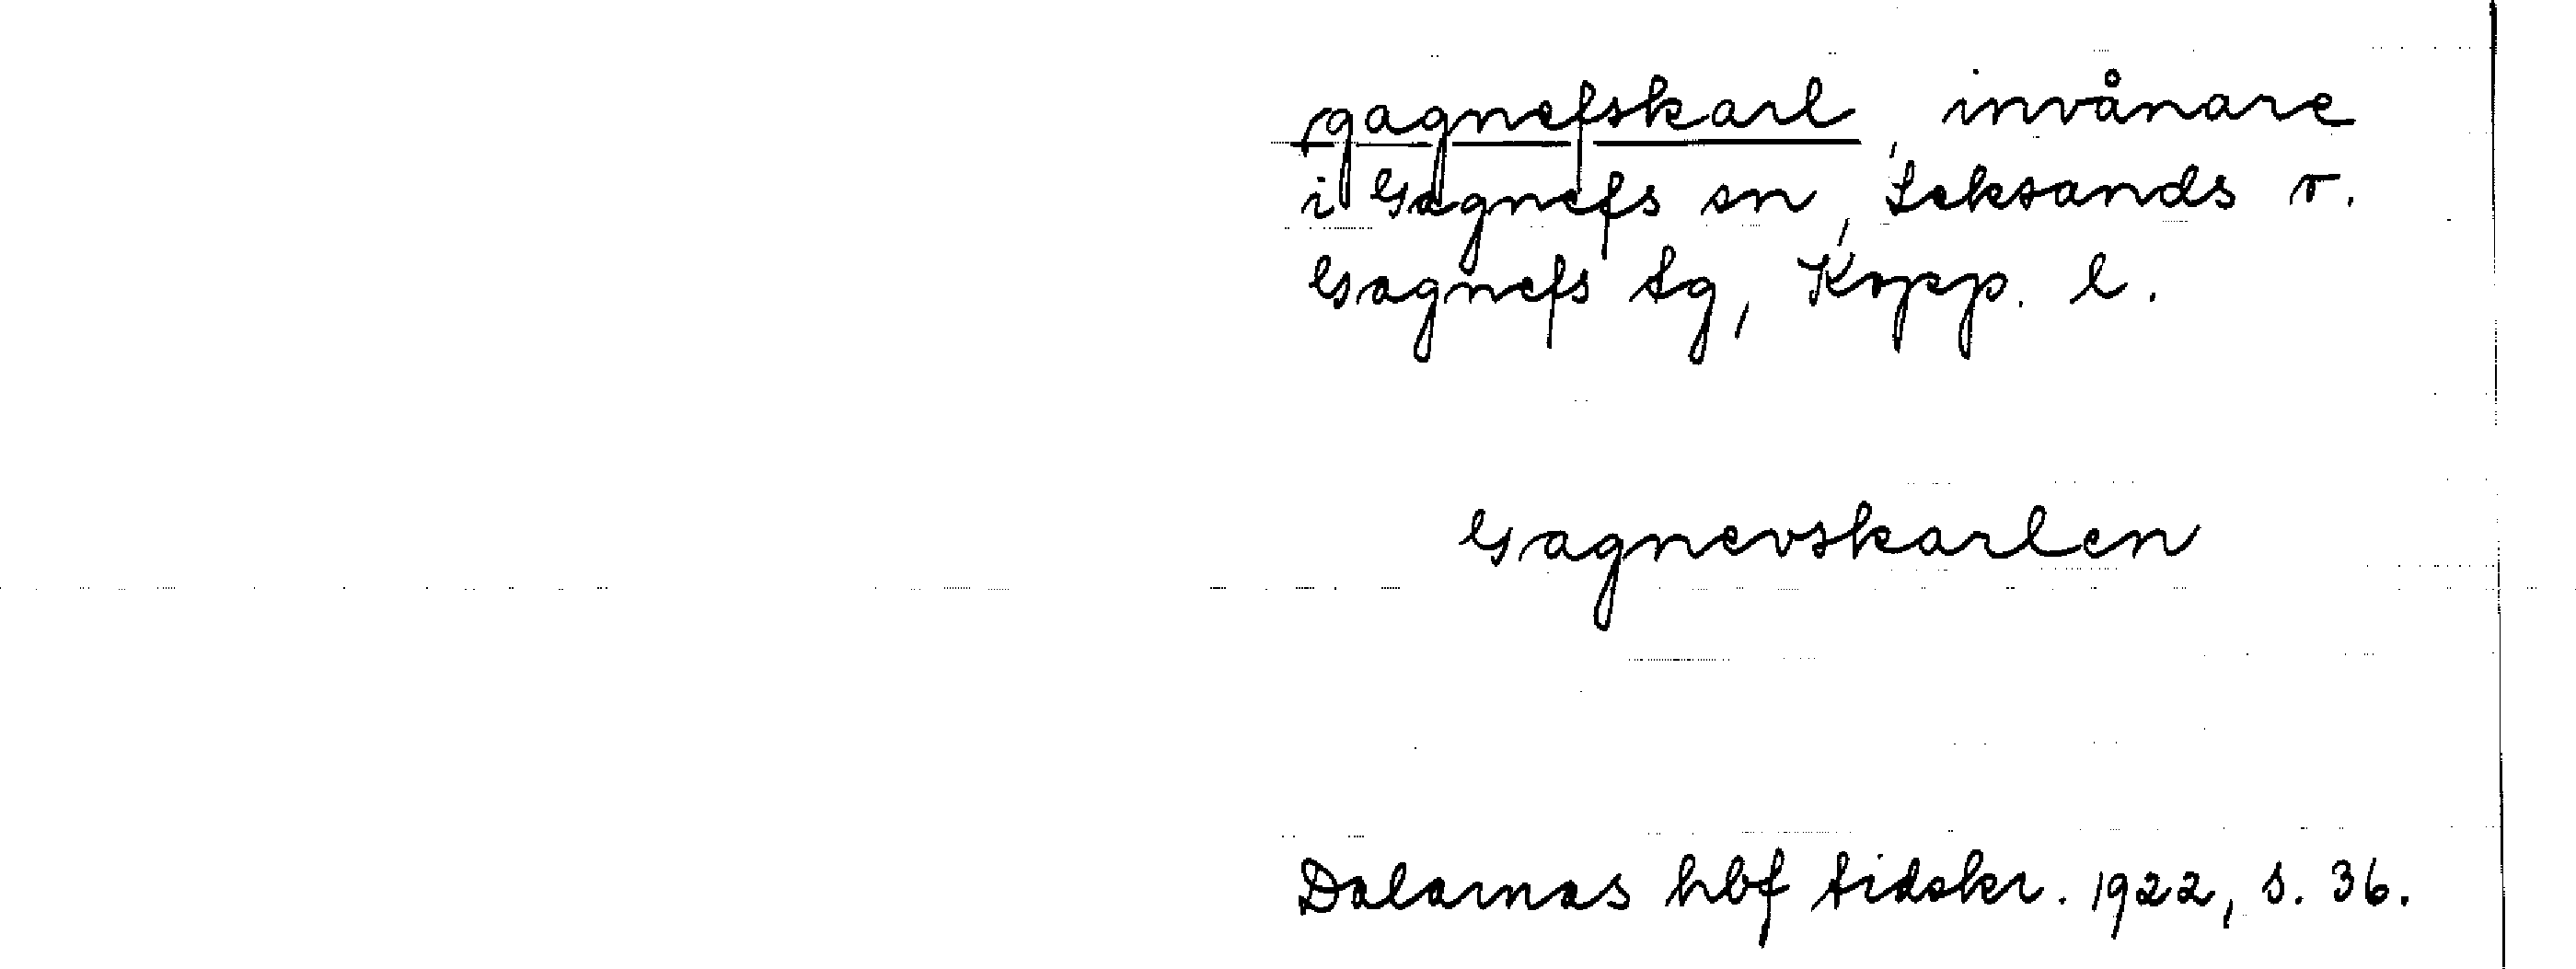 gagnefskarl, invånare
i Gagnefs sn, Leksands o.
Gagnefs tg, Kopp. l.
Gagnevskarlen
Dalarnas hbf tidskr. 1922, s. 36.